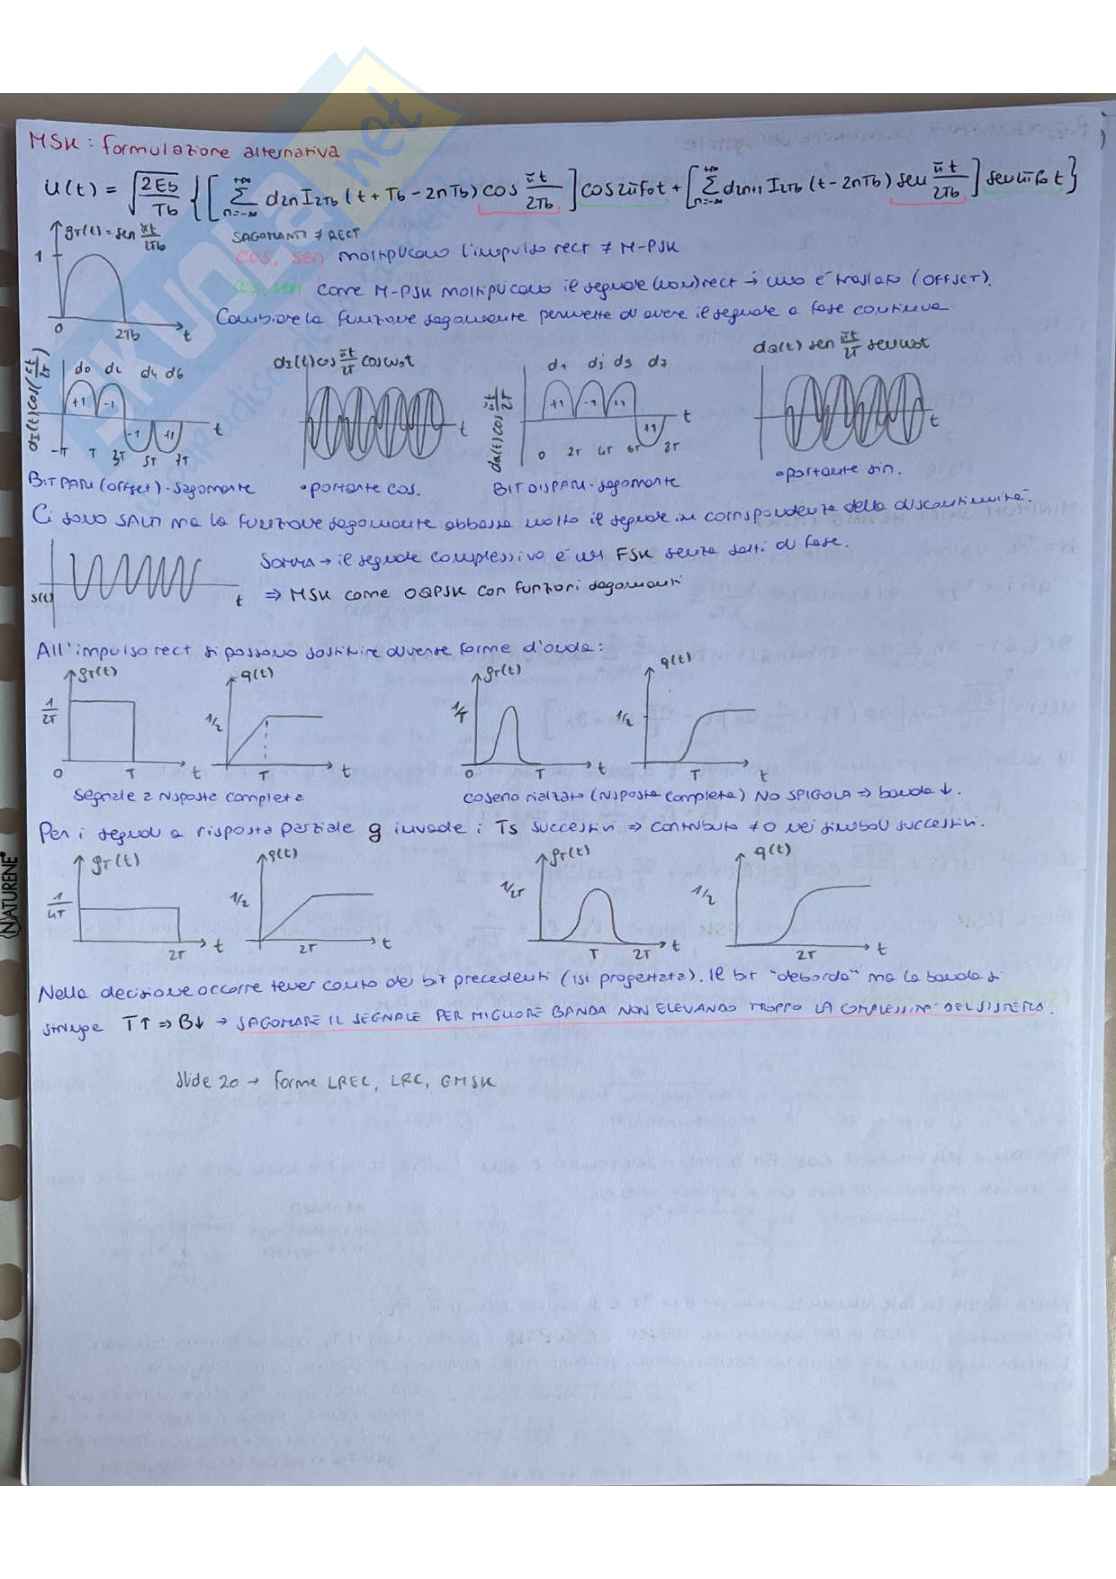 MSK: formulazione alternativa
U(t) = √(2Eb/Tb) {[ Σ n=-∞ +∞ d2n I2Tb (t + Tb - 2nTb) cos πt/2Tb ] cos 2πf0t + [ Σ n=-∞ +∞ d2n+1 I2Tb (t - 2nTb) sen πt/2Tb ] sen 2πf0 t }
gT(t) = sen πt/2Tb
SAGOMANTI ≠ RECT
1
cos, sen moltiplicano l'impulso rect ≠ M-PSK
come M-PSK moltiplicano il segnale (non) rect → uno è traslato (offset).
Cambiare la funzione sagomante permette di avere il segnale a fase continua
0 2Tb t
dI(t)cos(πt/2T)
d0 d2 d4 d6
+1 -1 -1 +1
-T T 3T 5T 7T t
dI(t) cos πt/2T cos ω0t
t
d1 d3 d5 d7
+1 -1 +1 +1
0 2T 4T 6T 8T t
dQ(t) sen πt/2T sen ω0t
t
BIT PARI (offset) · sagomante
• portante cos.
BIT DISPARI · sagomante
• portante sin.
Ci sono SALTI ma la funzione sagomante abbassa molto il segnale in corrispondenza della discontinuità.
SOMMA → il segnale complessivo è un FSK senza salti di fase.
s(t) t
⇒ MSK come OQPSK con funzioni sagomanti
All'impulso rect si possono sostituire diverse forme d'onda:
gT(t) 1/2T 0 T t
q(t) 1/2 T t
gT(t) 1/T 0 T t
q(t) 1/2 T t
Segnale a risposta completa
coseno rialzato (risposta completa) NO SPIGOLI ⇒ banda ↓.
Per i segnali a risposta parziale g invade i Ts successivi ⇒ contributo ≠0 nei simboli successivi.
gT(t) 1/4T 2T t
q(t) 1/2 2T t
gT(t) 1/2T T 2T t
q(t) 1/2 2T t
Nella decisione occorre tener conto dei bit precedenti (ISI progettata). Il bit "deborda" ma la banda si
stringe T↑ ⇒ B↓ → SAGOMARE IL SEGNALE PER MIGLIORE BANDA NON ELEVANDO TROPPO LA COMPLESSITÀ DEL SISTEMA.
slide 20 → forme LREC, LRC, GMSK
NATURENE